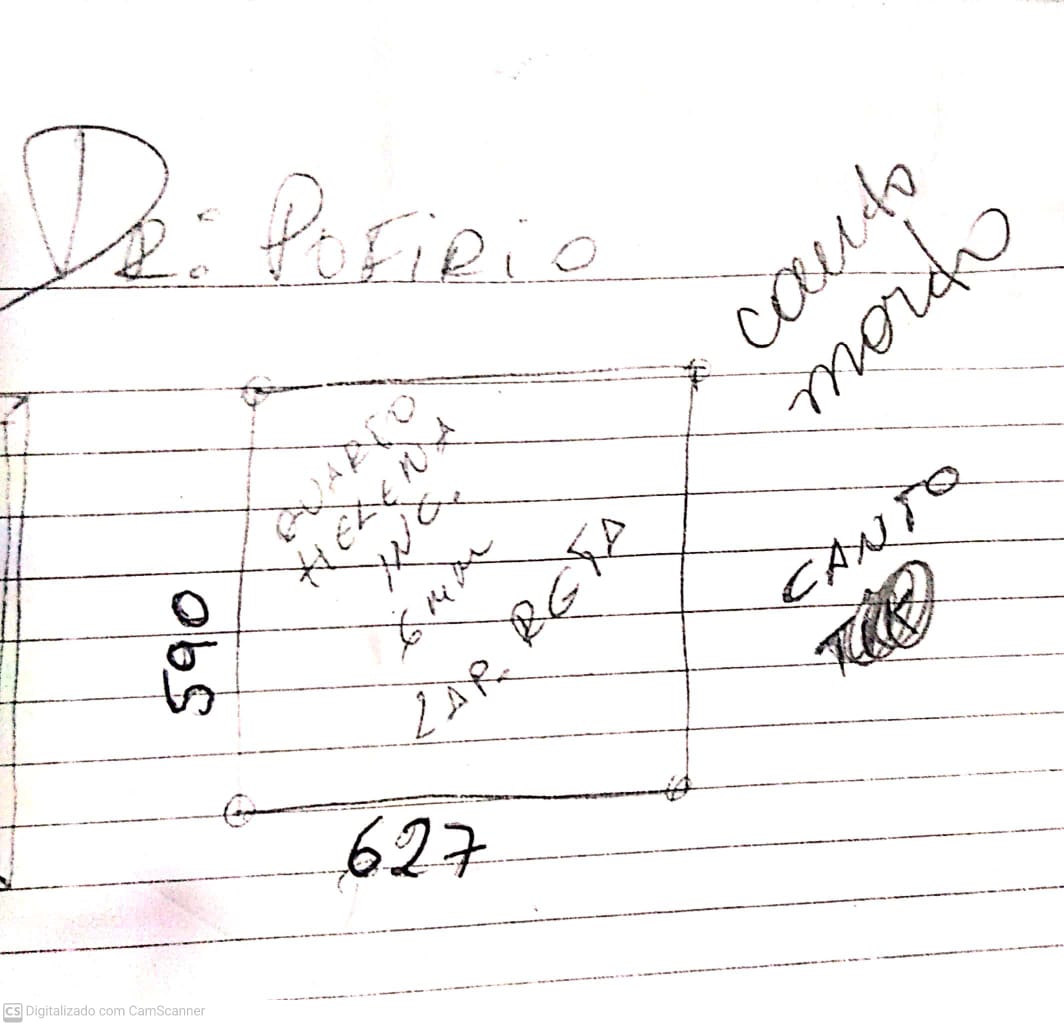 DR: POFIRIO
canto
morto
QUARTO
HELENA
INC.
6 mm
LAP. RETA
CANTO
590
627
CS Digitalizado com CamScanner